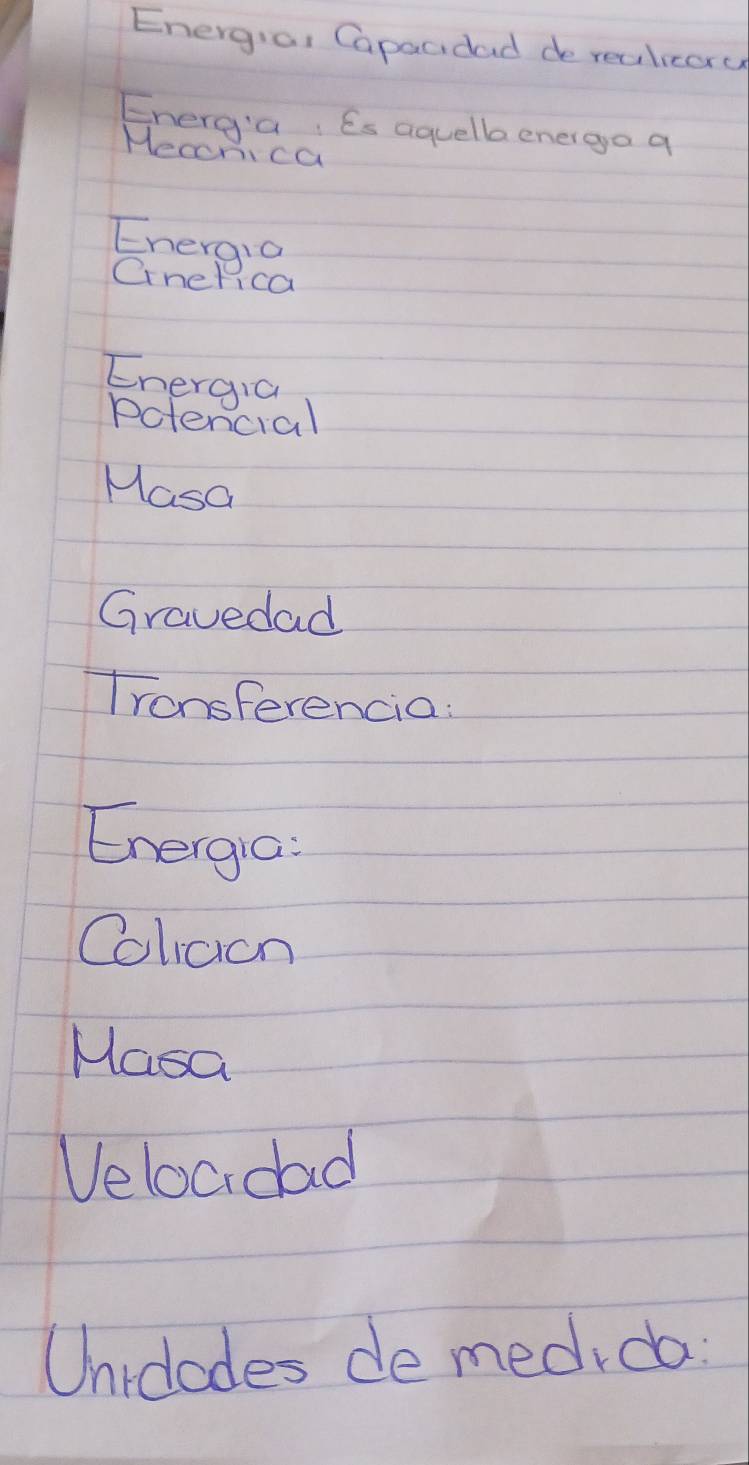 Energia: Capacidad de realizar
Energia: Es aquella energia q
Mecanica
Energia
Cinetica
Energia
Potencial
Masa
Gravedad
Transferencia:
Energia:
Colicion
Masa
Velocidad
Unidades de medida: